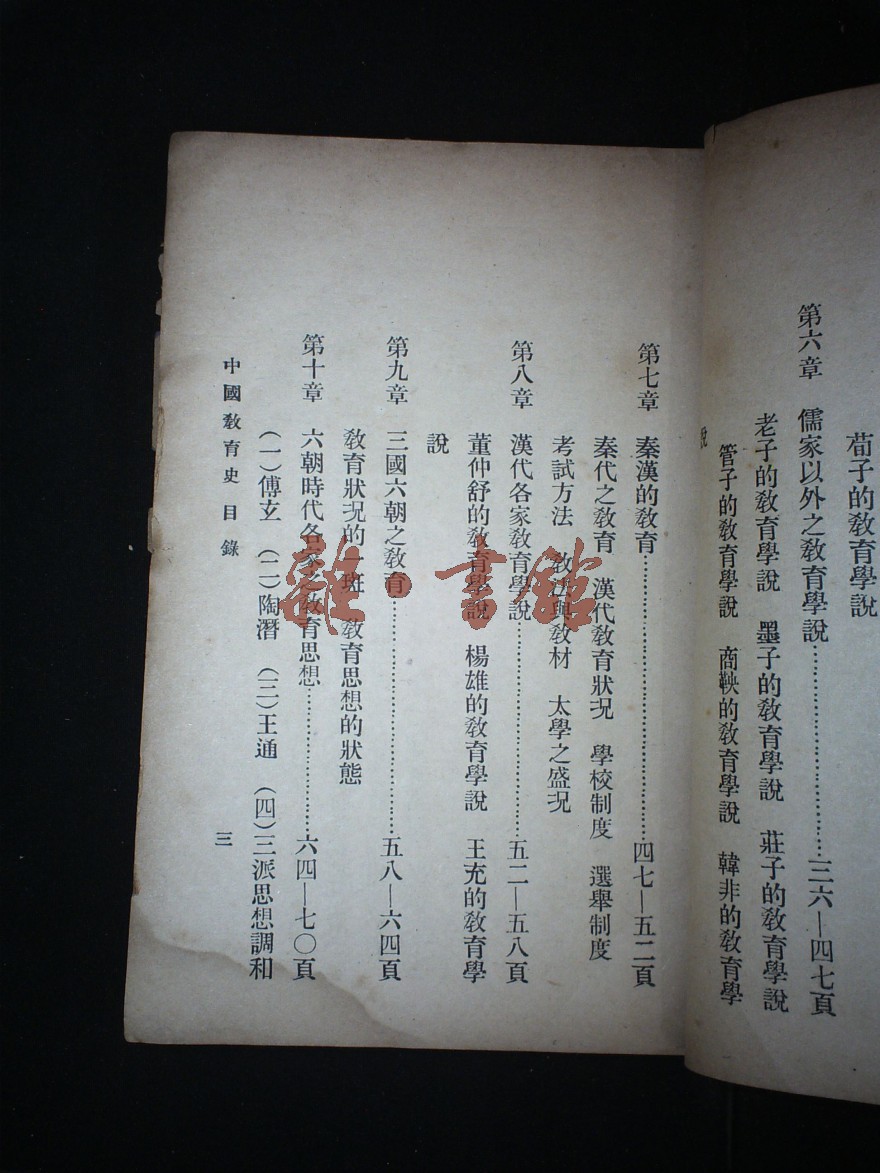 荀子的教育學說
第六章 儒家以外之教育學說…………三六—四七頁
老子的教育學說 墨子的教育學說 莊子的教育學說
管子的教育學說 商鞅的教育學說 韓非的教育學
說
第七章 秦漢的教育…………四七—五二頁
秦代之教育 漢代教育狀況 學校制度 選舉制度
考試方法 教法與教材 太學之盛況
第八章 漢代各家教育學說…………五二—五八頁
董仲舒的教育學說 楊雄的教育學說 王充的教育學
說
第九章 三國六朝之教育…………五八—六四頁
教育狀況的一斑 教育思想的狀態
第十章 六朝時代各家之教育思想…………六四—七〇頁
(一)傅玄 (二)陶潛 (三)王通 (四)三派思想調和
中國教育史 目錄
三
雜·書館